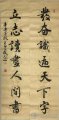 發奮識遍天下字
立志讀盡人間書